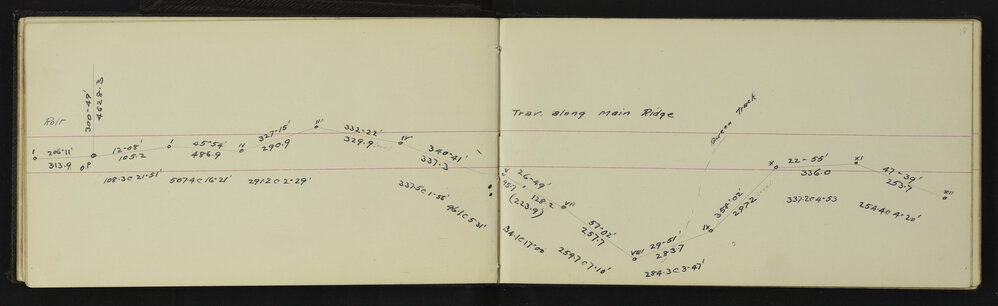 Rolf
300-49'
4628.3
I
206-11'
313.9
OP
12-08'
105.2
108.3 c 21-51'
I
45-54'
486.9
507.4 c 16-21'
II
327-15'
290.9
291.2 c 2-29'
III
332-22'
329.9
IV
340-41'
337.3
337.5 c 1-55'
96.1 c 5-31'
Trav. along Main Ridge
V
26-49'
128.2
(223.9)
134.1 c 17-00
VII
57-02'
257.7
259.7 c 7-10'
VIII
29-51'
283.7
284.3 c 3-47'
IX
358-02'
297.2
Track
X
22-55'
336.0
337.2 c 4-53
XI
47-39'
253.7
254.4 c 4-20'
XII